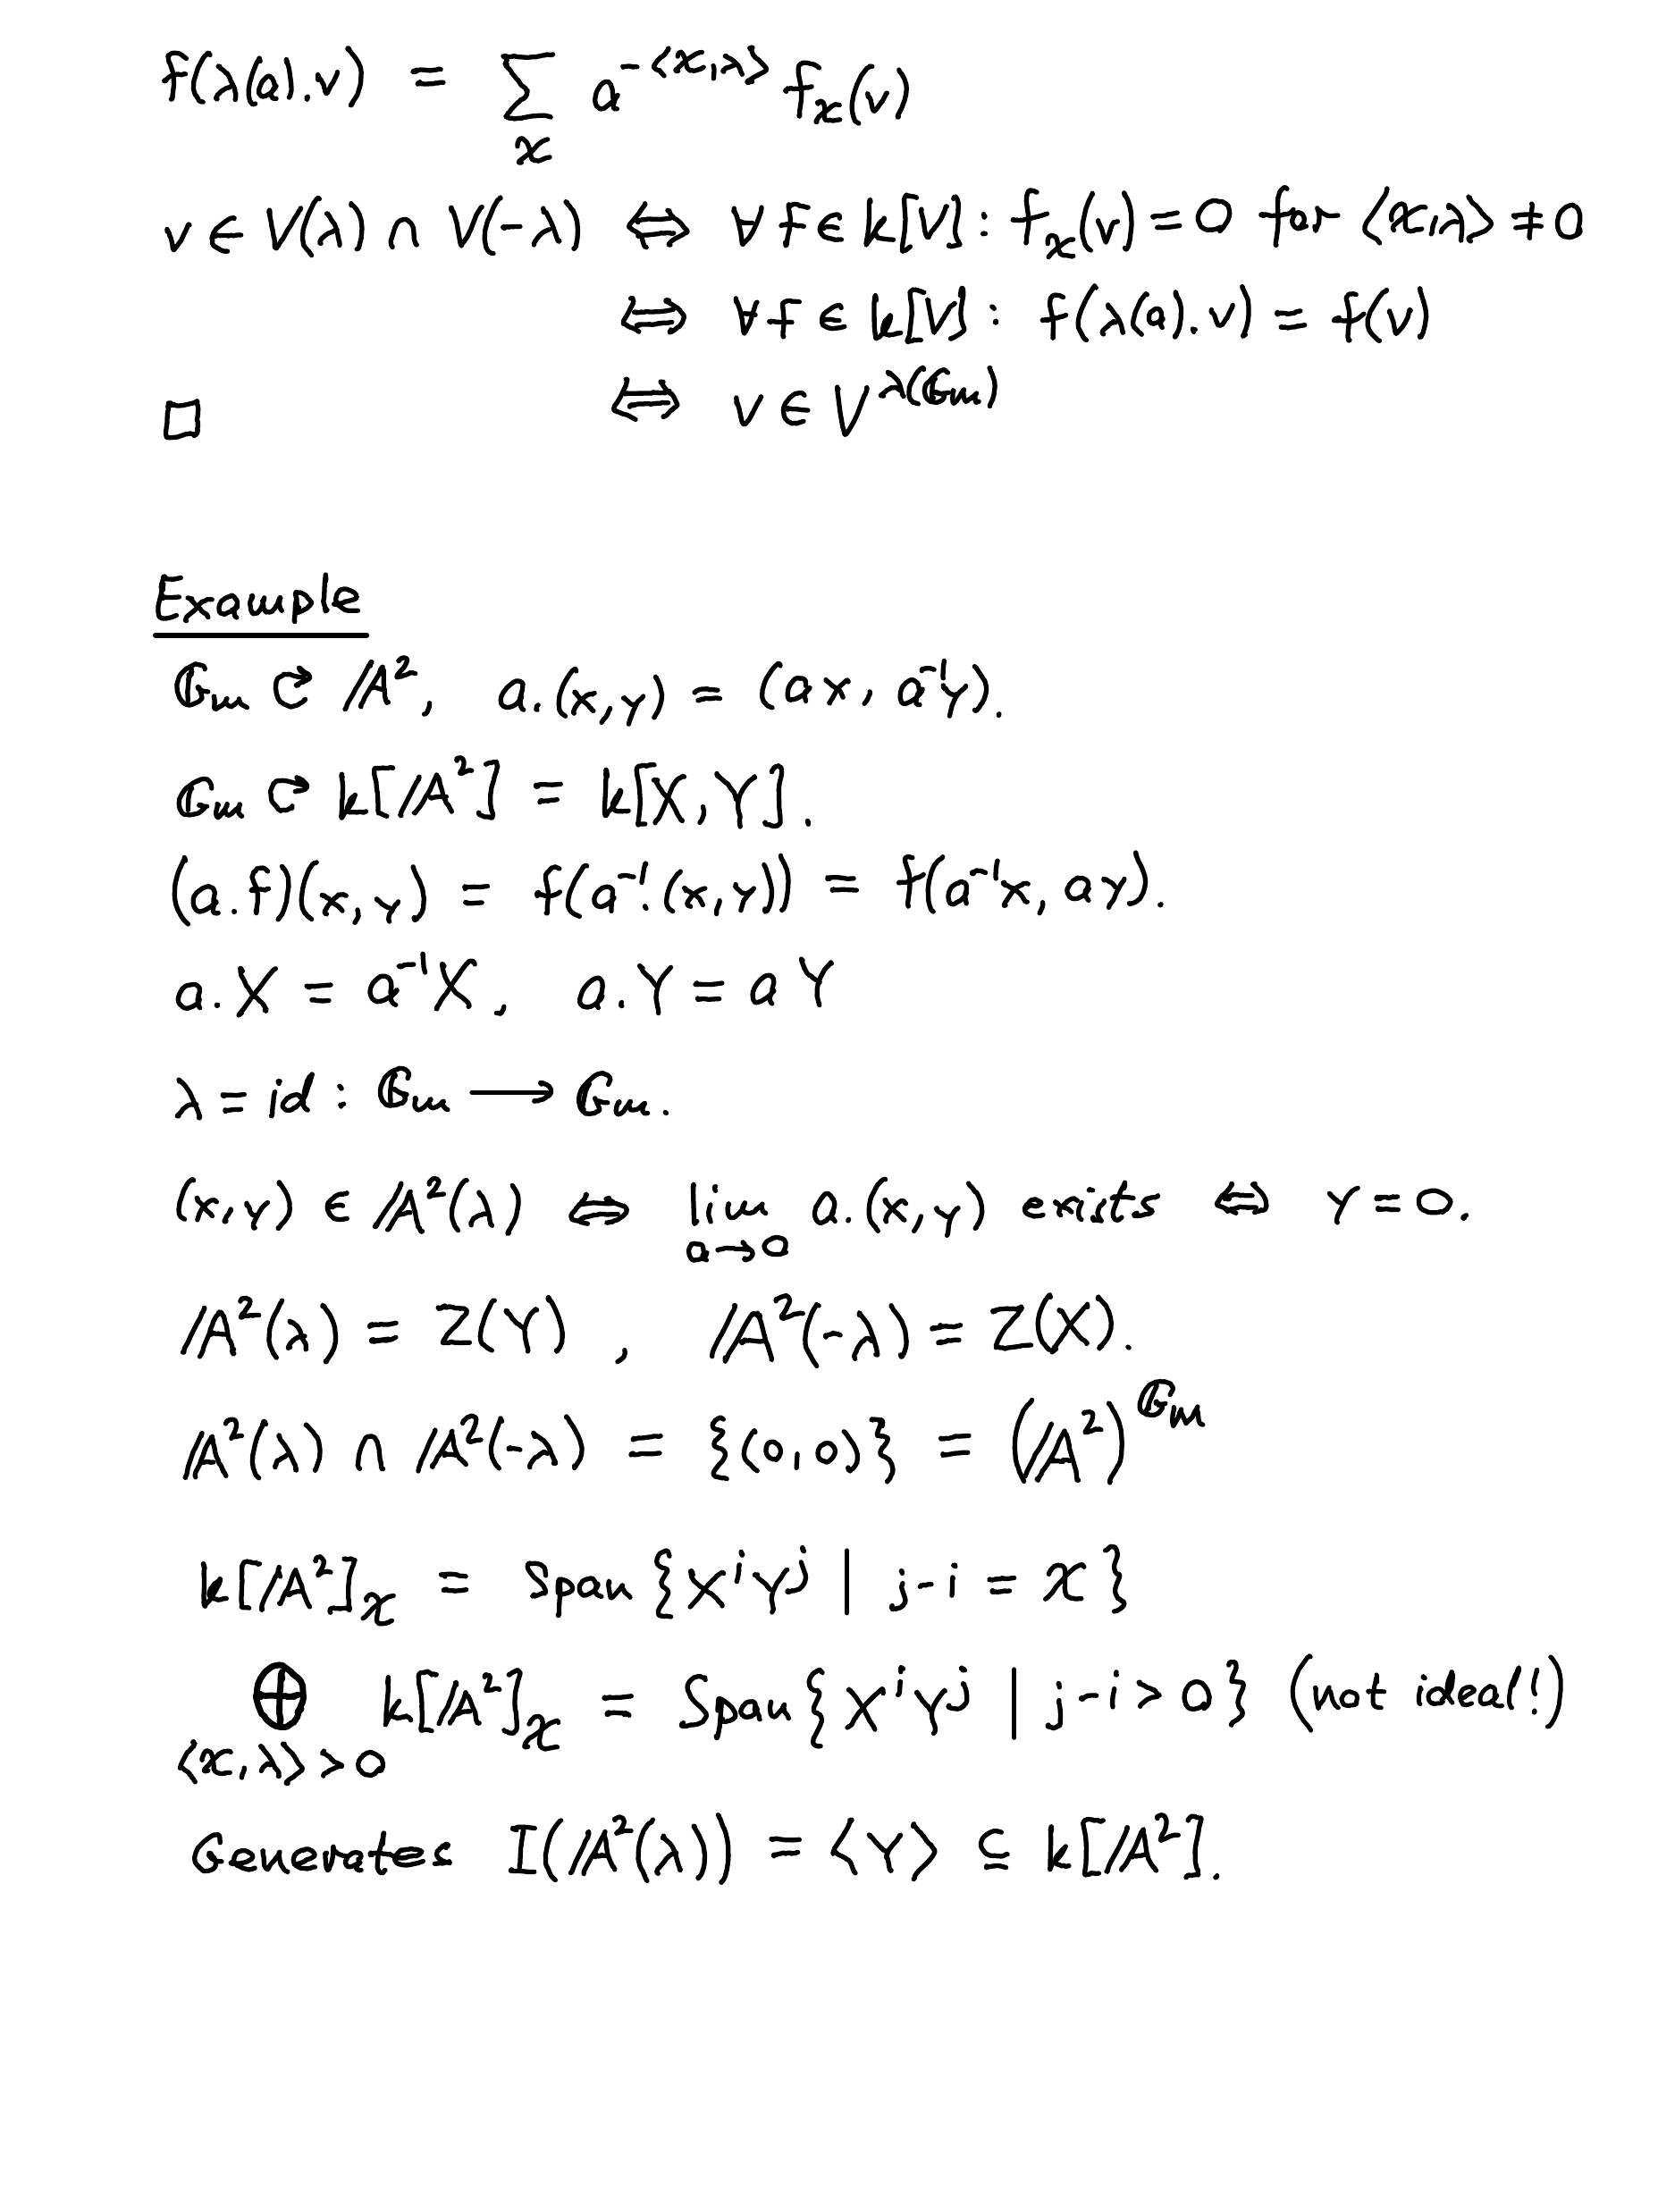 f(λ(a).v) = ∑_χ a^{-⟨χ,λ⟩} f_χ(v)
v ∈ V(λ) ∩ V(-λ) ⇔ ∀ f ∈ k[V] : f_χ(v) = 0 for ⟨χ,λ⟩ ≠ 0
⇔ ∀ f ∈ k[V] : f(λ(a).v) = f(v)
□ ⇔ v ∈ V^{λ(𝔾m)}
Example
𝔾m ↻ 𝔸², a.(x,y) = (ax, a⁻¹y).
𝔾m ↻ k[𝔸²] = k[X,Y].
(a.f)(x,y) = f(a⁻¹.(x,y)) = f(a⁻¹x, ay).
a.X = a⁻¹X, a.Y = aY
λ = id : 𝔾m ⟶ 𝔾m.
(x,y) ∈ 𝔸²(λ) ⇔ lim_{a→0} a.(x,y) exists ⇔ y = 0.
𝔸²(λ) = Z(Y), 𝔸²(-λ) = Z(X).
𝔸²(λ) ∩ 𝔸²(-λ) = {(0,0)} = (𝔸²)^{𝔾m}
k[𝔸²]_χ = Span{XⁱYʲ | j-i = χ}
⊕_{⟨χ,λ⟩>0} k[𝔸²]_χ = Span{XⁱYʲ | j-i > 0} (not ideal!)
Generates I(𝔸²(λ)) = ⟨Y⟩ ⊆ k[𝔸²].